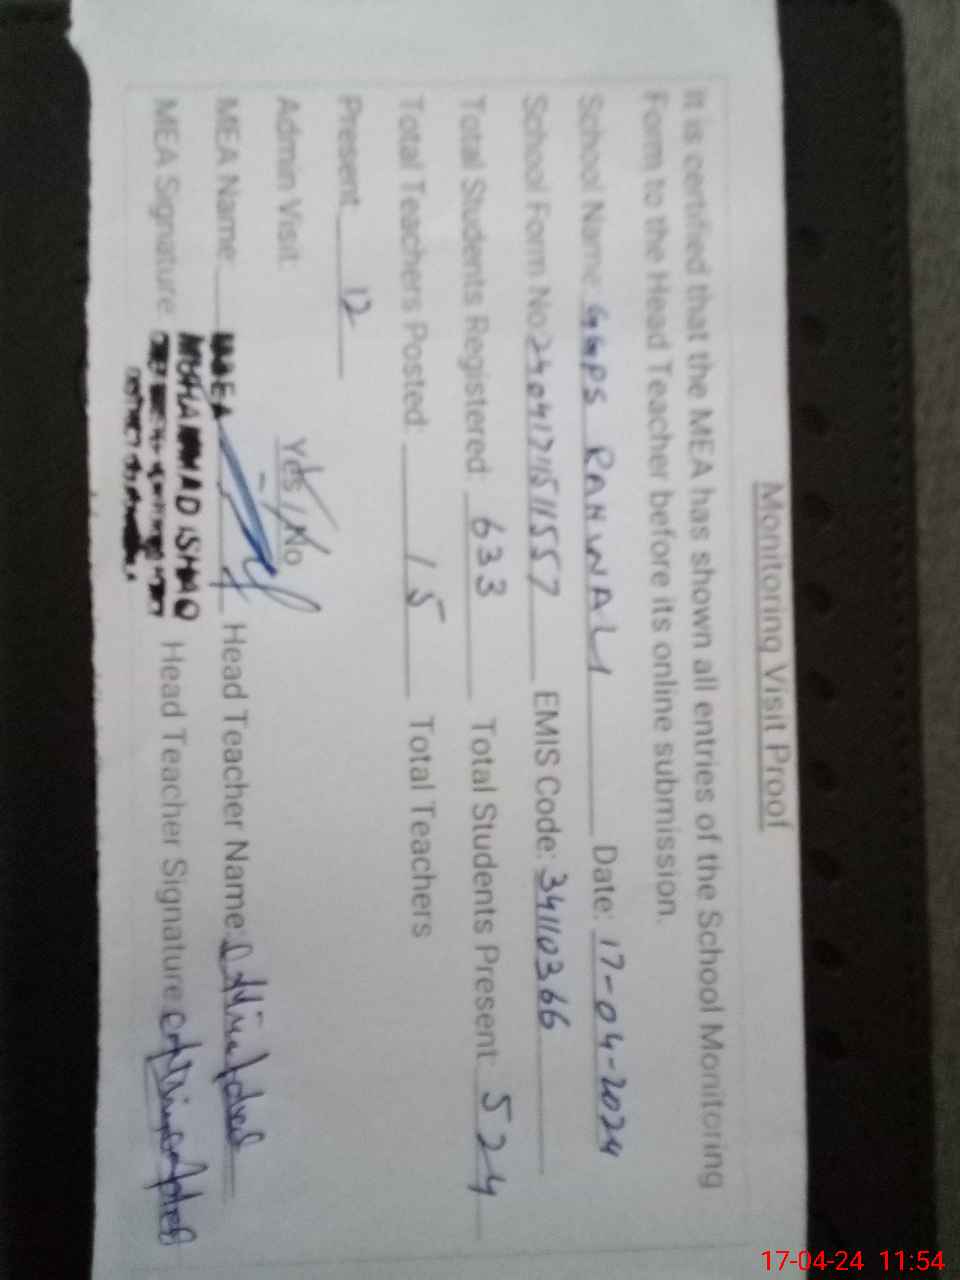 Monitoring Visit Proof
It is certified that the MEA has shown all entries of the School Monitoring
Form to the Head Teacher before its online submission.
School Name: GGPS RANWAL Date: 17-04-2024
School Form No: 240417151557 EMIS Code: 34110366
Total Students Registered: 633 Total Students Present: 524
Total Teachers Posted: 15 Total Teachers
Present 12
Admin Visit: Yes / No
MEA Name: MEA Head Teacher Name:
MEA Signature: MUHAMMAD ISHAQ Head Teacher Signature:
17-04-24 11:54